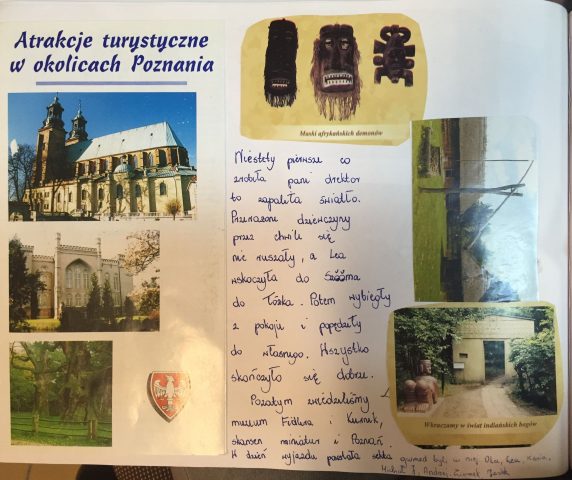 Atrakcje turystyczne
w okolicach Poznania
Maski afrykańskich demonów
Niestety pierwsze co
zrobiła pani drektor
to zapaliła światło.
Przerażone dziewczyny
przez chwile się
nie ruszały, a Lea
wskoczyła do
do łóżka. Potem wybiegły
z pokoju i popędziły
do własnego. Wszystko
skończyło się dobrze.
Pozatym zwiedzaliśmy
muzeum Fidlera i Kurnik,
skansen miniatur i Poznań.
W dzień wyjazdu powstała sekta
gwiazd byli w niej Ola, Lea, Kasia,
Michał J, Andrzej,
Wkraczamy w świat indiańskich bogów